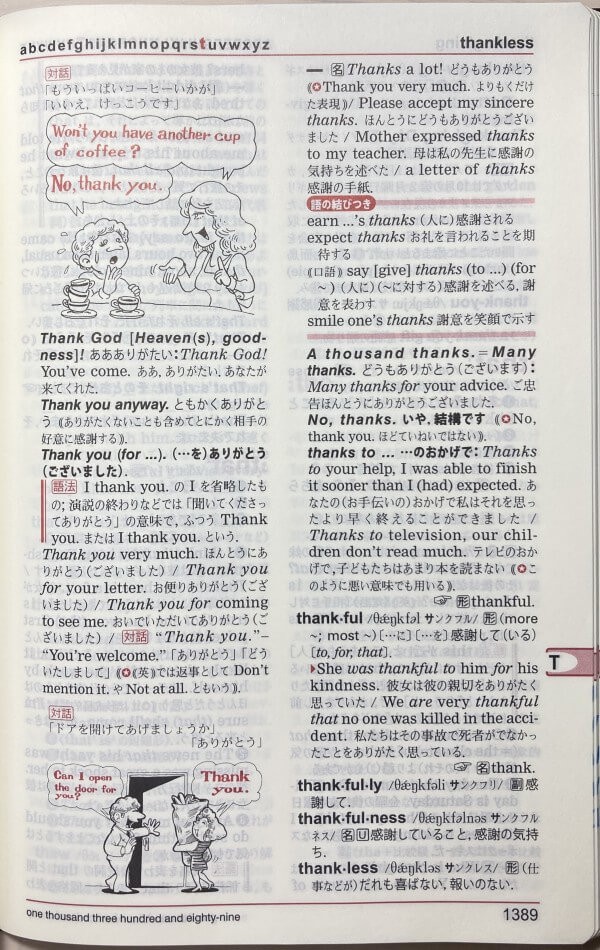 abcdefghijklmnopqrstuvwxyz
thankless
対話
「もういっぱいコーヒーいかが」
「いいえ, けっこうです」
Won't you have another cup
of coffee?
No, thank you.
Thank God [Heaven(s), good-
ness]! ああありがたい: Thank God!
You've come. ああ, ありがたい, あなたが
来てくれた.
Thank you anyway. ともかくありがと
う (《ありがたくないことも含めてとにかく相手の
好意に感謝する》).
Thank you (for ...). (…を)ありがとう
(ございました).
語法 I thank you. の I を省略したも
の; 演説の終わりなどでは「聞いてくださっ
てありがとう」の意味で, ふつう Thank
you. または I thank you. という.
Thank you very much. ほんとうにあ
りがとう(ございました) / Thank you
for your letter. お便りありがとう(ござ
いました) / Thank you for coming
to see me. おいでいただいてありがとう(ご
ざいました) / 対話 "Thank you."–
"You're welcome." 「ありがとう」「どう
いたしまして」(✪《英》では返事として Don't
mention it. や Not at all. ともいう).
対話
「ドアを開けてあげましょうか」
「ありがとう」
Can I open
the door for
you?
Thank
you.
— 名 Thanks a lot! どうもありがとう
(✪Thank you very much. よりもくだけ
た表現) / Please accept my sincere
thanks. ほんとうにどうもありがとうござい
ました / Mother expressed thanks
to my teacher. 母は私の先生に感謝の
気持ちを述べた / a letter of thanks
感謝の手紙.
語の結びつき
earn ...'s thanks (人に)感謝される
expect thanks お礼を言われることを期
待する
《口語》 say [give] thanks (to ...) (for
~) (人に)(~に対する)感謝を述べる, 謝
意を表わす
smile one's thanks 謝意を笑顔で示す
A thousand thanks. = Many
thanks. どうもありがとう(ございます):
Many thanks for your advice. ご忠
告ほんとうにありがとうございました.
No, thanks. いや, 結構です (✪No,
thank you. ほどていねいではない).
thanks to ... …のおかげで: Thanks
to your help, I was able to finish
it sooner than I (had) expected. あ
なたの(お手伝いの)おかげで私はそれを思っ
たより早く終えることができました /
Thanks to television, our chil-
dren don't read much. テレビのおか
げで, 子どもたちはあまり本を読まない (✪こ
のように悪い意味でも用いる).
☞ 形thankful.
thank·ful /θǽŋkfəl サンクフル/ 形 (more
~; most ~) […に] 〔…を〕感謝して(いる)
[to, for, that].
▶She was thankful to him for his
kindness. 彼女は彼の親切をありがたく
思っていた / We are very thankful
that no one was killed in the acci-
dent. 私たちはその事故で死者がでなかっ
たことをありがたく思っている.
☞ 名thank.
thank·ful·ly /θǽŋkfəli サンクフリ/ 副 感
謝して.
thank·ful·ness /θǽŋkfəlnəs サンクフル
ネス/ 名 U 感謝していること, 感謝の気持
ち.
thank·less /θǽŋkləs サンクレス/ 形 (仕
事などが)だれも喜ばない, 報いのない.
T
one thousand three hundred and eighty-nine
1389